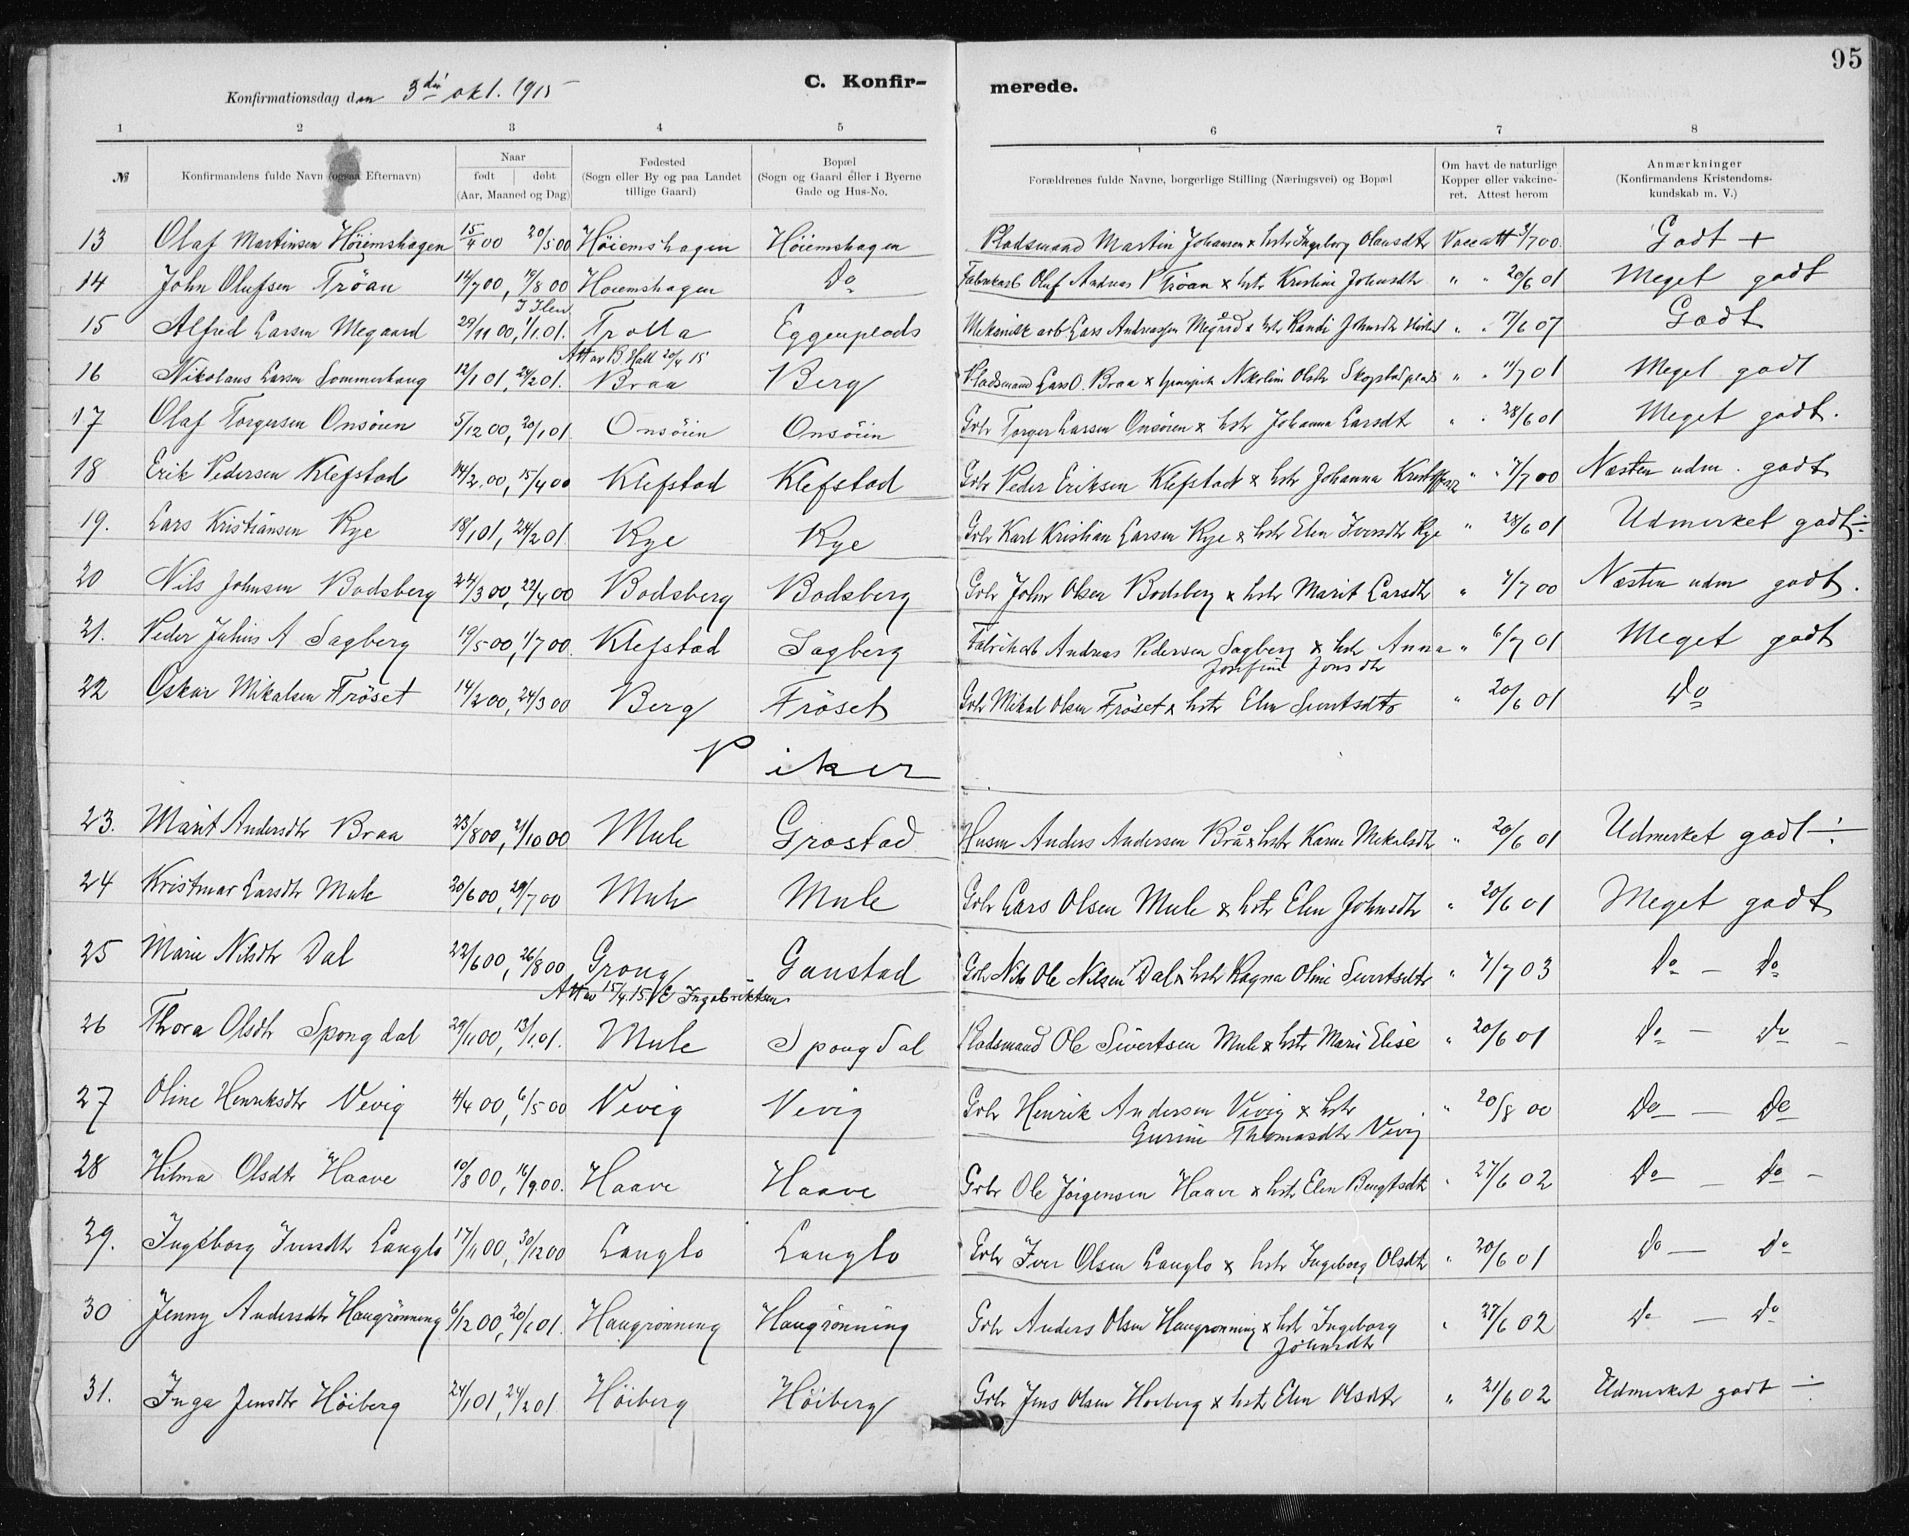 95
C. Konfir-
merede.
Konfirmationsdag den 3die okt. 1915
1 2 3 4 5 6 7 8
№ Konfirmandens fulde Navn (ogsaa Efternavn) Naar født døbt (Aar, Maaned og Dag) Fødested (Sogn eller By og paa Landet tillige Gaard) Bopæl (Sogn og Gaard eller i Byerne Gade og Hus-No. Forældrenes fulde Navne, borgerlige Stilling (Næringsvei) og Bopæl Om havt de naturlige Kopper eller vakcineret. Attest herom Anmærkninger (Konfirmandens Kristendomskundskab m. V.)
13 Olaf Martinsen Höiemshagen 15/4 00 20/5 00 Höiemshagen Höiemshagen Pladsmand Martin Johansen & hstr Ingeborg Olausdtr Vacc att 3/7 00. Godt +
14 John Olufsen Tröan 14/7 00, 19/8 00 Hoiemshagen Do Fabrikarb Oluf Andreas P Tröan & hstr Kristine Johnsdtr " " 20/6 01 Meget godt
15 Alfred Larsen Megaard 29/11 00, 1/1 01. Trolla Eggenplads Mekanisk arb Lars Andreassen Megård & hstr Randi Johnsdtr " " 17/6 07 Godt
Att av B Hall 20/4 15
16 Nikolaus Larsen Sommerhaug 12/1 01, 24/2 01. Braa Berg Pladsmand Lars O. Braa & Nikoline Olsdtr " " 11/7 01 Meget godt
17 Olaf Torgersen Onsöien 5/12 00, 20/1 01 Onsöien Onsöien Gbr Torger Larsen Onsören & hstr Johanna Larsdt " " 28/6 01 Meget godt.
18 Erik Pedersen Klefstad 14/2 00, 15/4 00 Klefstad Klefstad Gbr Peder Eriksen Klefstad & hstr Johanna " " 7/7 00 Næsten udm. godt
19. Lars Kristiansen Rye 18/1 01, 24/2 01 Rye Rye Gbr Karl Kristian Larsen Rye & hstr Elen Iversdtr Rye " 28/6 01 Udmerket godt ÷
20 Nils Johnsen Bodsberg 24/3 00, 22/4 00 Bodsberg Bodsberg Gbr John Olsen Bodsberg & hstr Marit Larsdtr " 7/7 00 Næsten udm godt.
21. Peder Julius A Sagberg 19/5 00, 1/7 00. Klefstad Sagberg Fabrikarb Andreas Pedersen Sagberg & hstr Anna " 6/7 01 Meget godt
Josefine Jonsdtr
22 Oskar Mikalsen Fröset 14/2 00, 24/3 00 Berg Fröset Gbr Mikal Olsen Fröset & hstr Elen Sivertsdtr " 20/6 01 Do
Piker
23. Marit Andersdtr Braa 23/8 00, 21/10 00 Mule Grostad Husm Anders Andersen Brå & hstr Karen Mikalsdtr " 20/6 01 Udmerket godt ÷
24 Kristmar Larsdtr Mule 20/6 00, 29/7 00 Mule Mule Gbr Lars Olsen Mule & hstr Elen Johnsdtr " 20/6 01 Meget godt
25 Marie Nilsdtr Dal 22/6 00, 26/8 00 Grong Ganstad Gbr Nils Ole Nilsen Dal & hstr Ragna Oline Sivertsdtr " 7/7 03 Do — Do
Att av 15/4 15. E Ingebriktsen
26 Thora Olsdtr Spongdal 29/11 00, 13/1 01. Mule Spongdal Pladsmand Ole Sivertsen Mule & hstr Marie Elise " 20/6 01 Do — Do —
27 Oline Henriksdtr Vevig 4/4 00, 6/5 00 Vevig Vevig Gbr Henrik Andersen Vevig & hstr " 20/8 00 Do — Do
Gurine Thomasdtr Vevig
28 Hilma Olsdtr Haave 10/8 00, 16/9 00. Haave Haave Gbr Ole Jörgensen Haave & hstr Elen Bengtsdtr " 27/6 02 Do — Do —
29. Ingeborg Iversdtr Langlo 17/11 00, 30/12 00 Langlo Langlo Gbr Iver Olsen Langlo & hstr Ingeborg Olsdtr " 20/6 01 Do — Do
30 Jenny Andersdtr Haugrönning 6/12 00, 20/1 01. Haugrönning Haugrönning Gbr Anders Olsen Haugrönning & hstr Ingeborg " 27/6 02 Do — Do
Johnsdtr
31. Inga Jensdtr Höiberg 24/1 01, 24/2 01. Höiberg Höiberg Gbr Jens Olsen Hoiberg & hstr Elen Olsdtr " 21/6 02 Udmerket godt ÷